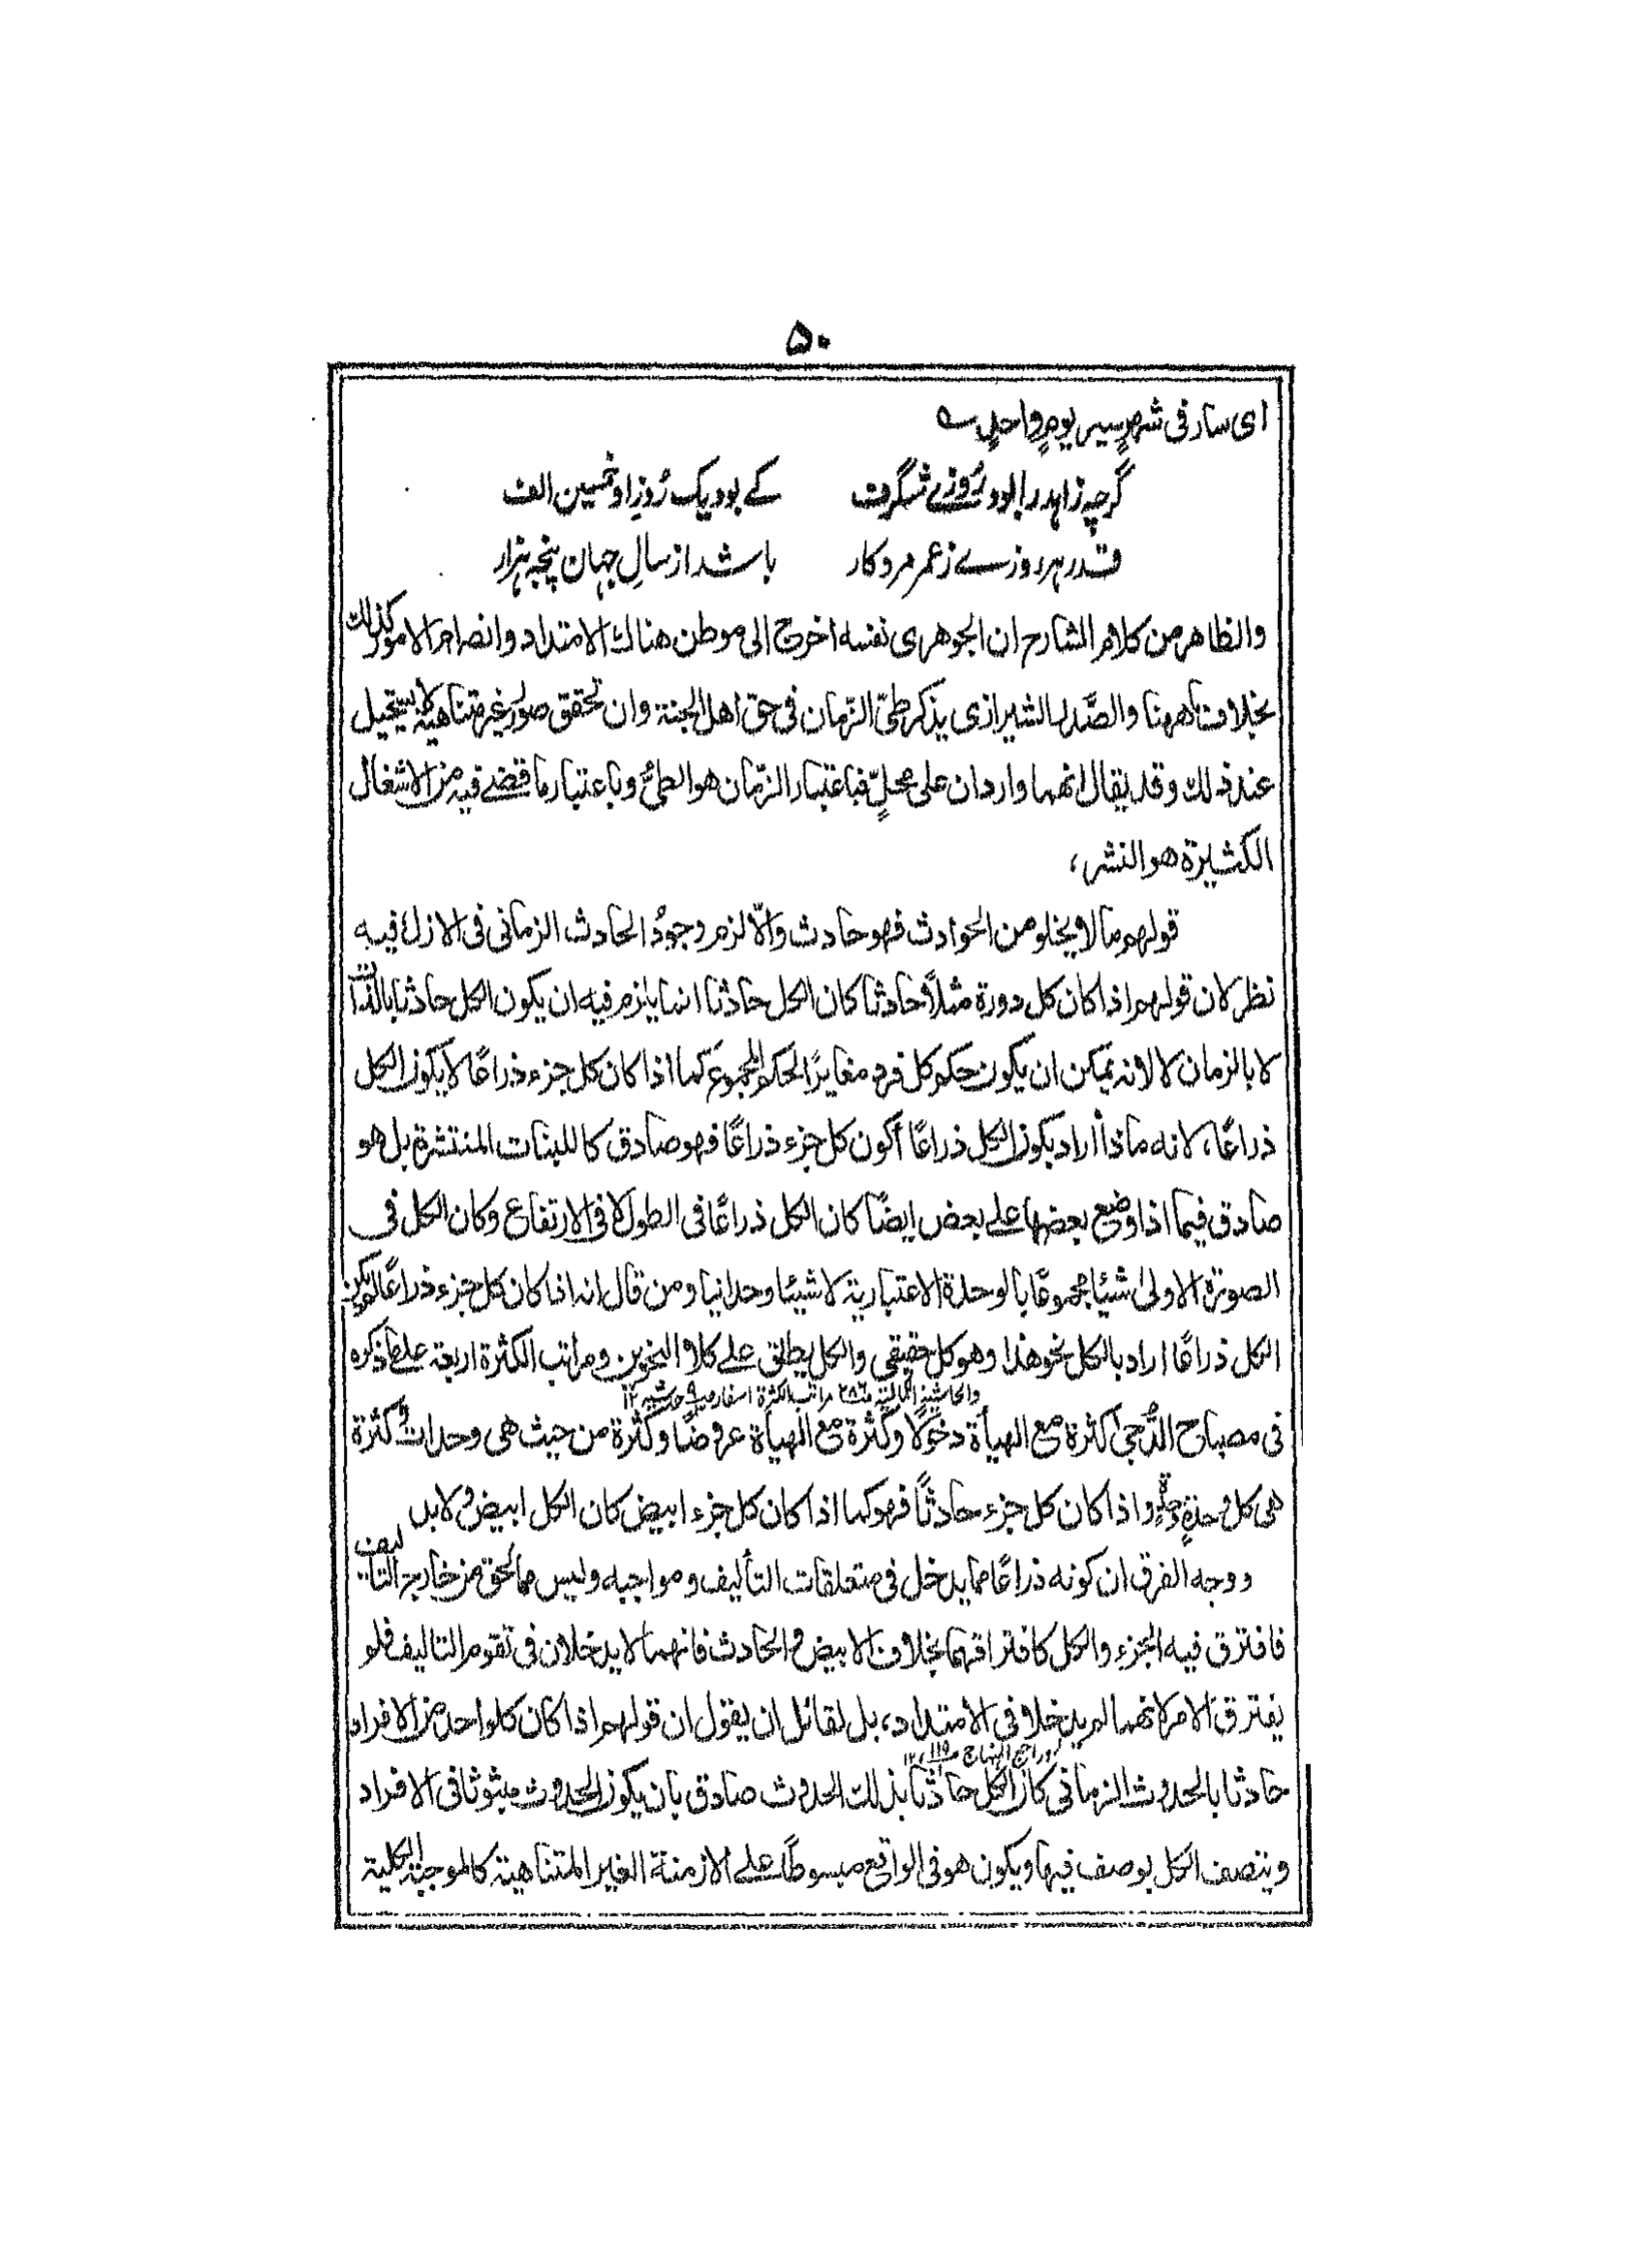 ۵۰
ای سار فی شهرٍ سیر یومٍ واحدٍ ے
گرچه زاهد را بود روزے شگرف کے بود یک روزِ او خمسین الف
قدر هر روزے ز عمر مرد کار باشد از سالِ جهان پنجه هزار
والظاهر من کلام الشارح ان الجوهری نفسه اخرج الی موطن هناك الامتداد وانصرام الامور کذلك
بخلاف ما ههنا والصَّدر الشیرازی یذکر طیّ الزّمان فی حق اهل الجنة وان تحقق صور غیر متناهیة لا یستحیل
عند ذلك وقد یقال انهما واردان علی محلٍّ فباعتبار الزّمان هو الطیُّ وباعتبار ما قضے فیه من الاشغال
الکثیرة هو النشر،
قولهم ما لا یخلو من الحوادث فهو حادث والّا لزم وجودُ الحادث الزمانی فی الازل فیه
نظر لان قولهم اذا کان کل دورة مثلاً حادثا کان الکل حادثا انما یلزم فیه ان یکون الکل حادثا بالذات
لا بالزمان لا لانه یمکن ان یکون حکم کل فرد مغایرًا لحکم المجموع کما اذا کان کل جزء ذراعًا لا یکون الکل
ذراعًا، لانه ماذا أراد بکون الکل ذراعًا أکون کل جزء ذراعًا فهو صادق کاللبنات المنتثرة بل هو
صادق فیما اذا وضع بعضها علے بعض ایضًا کان الکل ذراعًا فی الطول لا فی الارتفاع وکان الکل فی
الصورة الاولیٰ شیئا مجموعًا بالوحدة الاعتباریة لا شیئا وحدانیا ومن قال انه اذا کان کل جزء ذراعًا لم یکن
الکل ذراعًا اراد بالکل نحو هذا وهو کل حقیقی والکل یطلق علے کلا النحوین ومراتب الکثرة اربعة علے ما ذکره
مراتب الکثرة اسفار
فی مصباح الدُّجیٰ کثرة مع الهیأة دخولًا وکثرة مع الهیأة عروضًا وکثرة من حیث هی وحدات وکثرة
هی کل وحدةٍ وحدةٍ واذا کان کل جزء حادثًا فهو کما اذا کان کل جزء ابیض کان الکل ابیض ولا بد
ووجه الفرق ان کونه ذراعًا مما یدخل فی متعلقات التألیف ومواجبه ولیس مما لحق من خارج التالیف
فافترق فیه الجزء والکل کافتراقهما بخلاف الابیض والحادث فانهما لا یدخلان فی تقوم التالیف فلو
یفترق الامر لانهما لم یدخلا فی الامتداد، بل لقائل ان یقول ان قولهم اذا کان کل واحد من الافراد
حادثا بالحدوث الزمانی کان الکل حادثا بذلك الحدوث صادق بان یکون الحدوث مبثوثا فی الافراد
ویتصف الکل بوصف فیها ویکون هو فی الواقع مبسوطًا علے الازمنة الغیر المتناهیة کالموجبة الکلیة